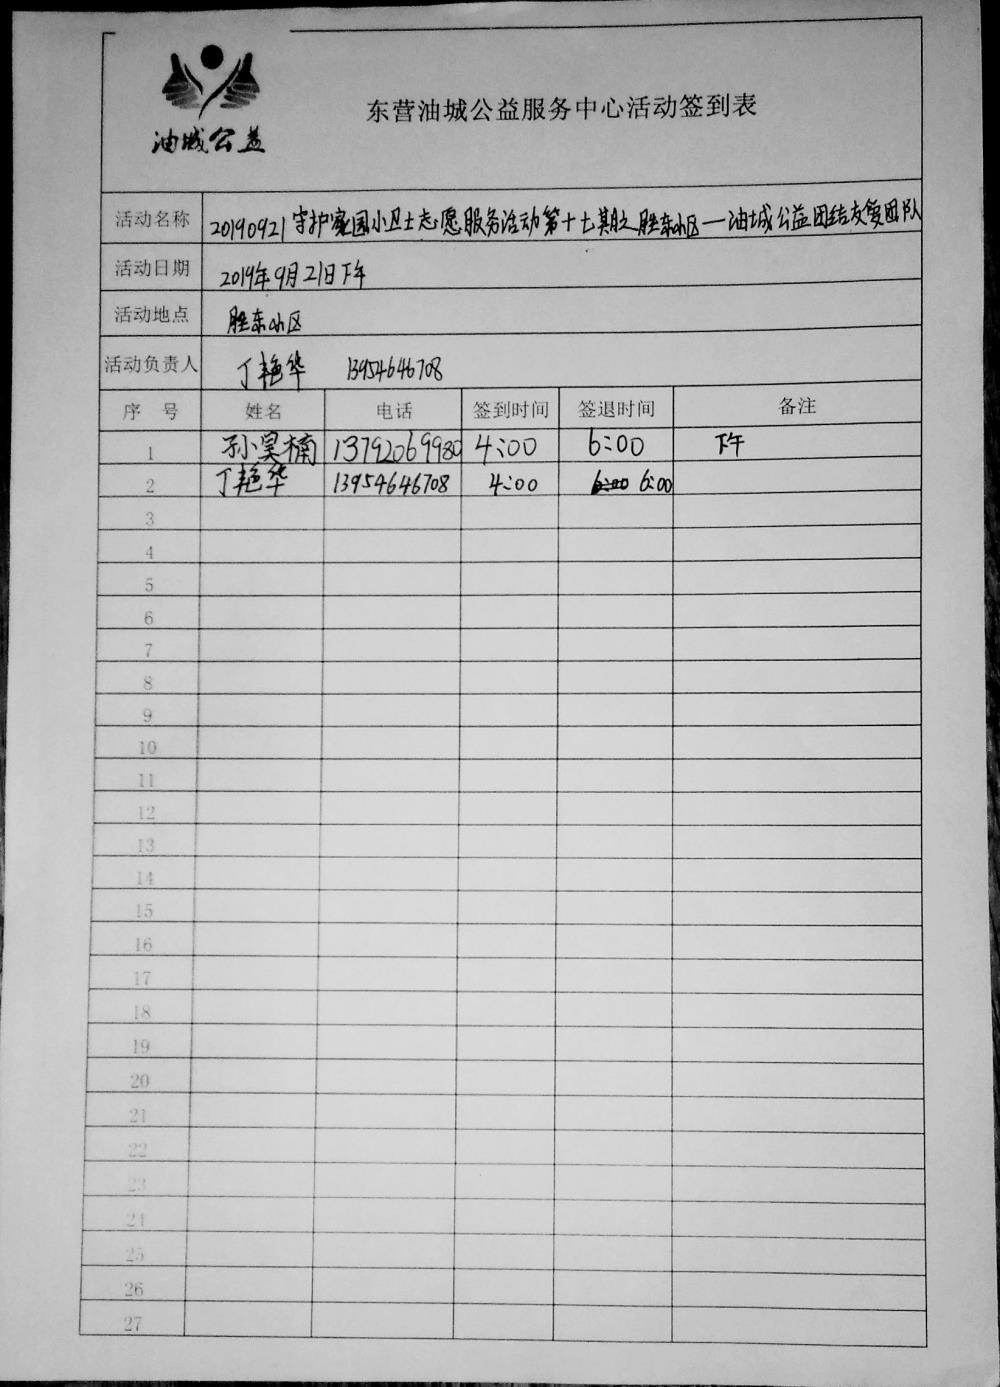 油城公益
东营油城公益服务中心活动签到表
活动名称 20190921守护家园小卫士志愿服务活动第十七期之胜东小区—油城公益团结友爱团队
活动日期 2019年9月21日下午
活动地点 胜东小区
活动负责人 丁艳华 13954646708
序 号 姓名 电话 签到时间 签退时间 备注
1 孙昊楠 13792069980 4:00 6:00 下午
2 丁艳华 13954646708 4:00 6:00 6:00
3
4
5
6
7
8
9
10
11
12
13
14
15
16
17
18
19
20
21
22
23
24
25
26
27